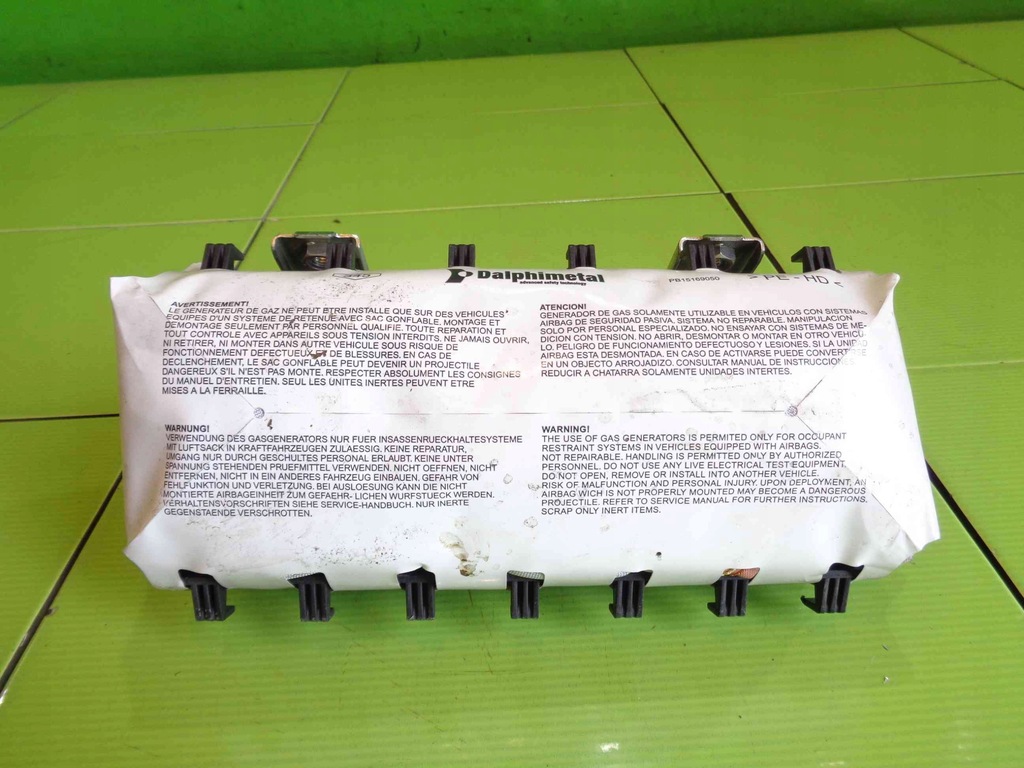 Dalphimetal
advanced safety technology
PB15169050
> PE - HD <
AVERTISSEMENT!
LE GENERATEUR DE GAZ NE PEUT ETRE INSTALLE QUE SUR DES VEHICULES
EQUIPES D'UN SYSTEME DE RETENUE AVEC SAC GONFLABLE. MONTAGE ET
DEMONTAGE SEULEMENT PAR PERSONNEL QUALIFIE. TOUTE REPARATION ET
TOUT CONTROLE AVEC APPAREILS SOUS TENSION INTERDITS. NE JAMAIS OUVRIR,
NI RETIRER, NI MONTER DANS AUTRE VEHICULE SOUS RISQUE DE
FONCTIONNEMENT DEFECTUEUX DE BLESSURES. EN CAS DE
DECLENCHEMENT, LE SAC GONFLABLE PEUT DEVENIR UN PROJECTILE
DANGEREUX S'IL N'EST PAS MONTE. RESPECTER ABSOLUMENT LES CONSIGNES
DU MANUEL D'ENTRETIEN. SEUL LES UNITES INERTES PEUVENT ETRE
MISES A LA FERRAILLE.
ATENCION!
GENERADOR DE GAS SOLAMENTE UTILIZABLE EN VEHICULOS CON SISTEMAS
AIRBAG DE SEGURIDAD PASIVA. SISTEMA NO REPARABLE. MANIPULACION
SOLO POR PERSONAL ESPECIALIZADO. NO ENSAYAR CON SISTEMAS DE ME-
DICION CON TENSION. NO ABRIR, DESMONTAR O MONTAR EN OTRO VEHICU-
LO. PELIGRO DE FUNCIONAMIENTO DEFECTUOSO Y LESIONES. SI LA UNIDAD
AIRBAG ESTA DESMONTADA. EN CASO DE ACTIVARSE PUEDE CONVERTIRSE
EN UN OBJECTO ARROJADIZO. CONSULTAR MANUAL DE INSTRUCCIONES
REDUCIR A CHATARRA SOLAMENTE UNIDADES INTERTES.
WARNUNG!
VERWENDUNG DES GASGENERATORS NUR FUER INSASSENRUECKHALTESYSTEME
MIT LUFTSACK IN KRAFTFAHRZEUGEN ZULAESSIG. KEINE REPARATUR,
UMGANG NUR DURCH GESCHULTES PERSONAL ERLAUBT. KEINE UNTER
SPANNUNG STEHENDEN PRUEFMITTEL VERWENDEN. NICHT OEFFNEN, NICHT
ENTFERNEN, NICHT IN EIN ANDERES FAHRZEUG EINBAUEN. GEFAHR VON
FEHLFUNKTION UND VERLETZUNG. BEI AUSLOESUNG KANN DIE NICHT
MONTIERTE AIRBAGEINHEIT ZUM GEFAEHR- LICHEN WURFSTUECK WERDEN.
VERHALTENSVORSCHRIFTEN SIEHE SERVICE-HANDBUCH. NUR INERTE
GEGENSTAENDE VERSCHROTTEN.
WARNING!
THE USE OF GAS GENERATORS IS PERMITED ONLY FOR OCCUPANT
RESTRAINT SYSTEMS IN VEHICLES EQUIPPED WITH AIRBAGS.
NOT REPAIRABLE. HANDLING IS PERMITTED ONLY BY AUTHORIZED
PERSONNEL. DO NOT USE ANY LIVE ELECTRICAL TEST EQUIPMENT.
DO NOT OPEN, REMOVE OR INSTALL INTO ANOTHER VEHICLE.
RISK OF MALFUNCTION AND PERSONAL INJURY. UPON DEPLOYMENT, AN
AIRBAG WICH IS NOT PROPERLY MOUNTED MAY BECOME A DANGEROUS
PROJECTILE. REFER TO SERVICE MANUAL FOR FURTHER INSTRUCTIONS.
SCRAP ONLY INERT ITEMS.